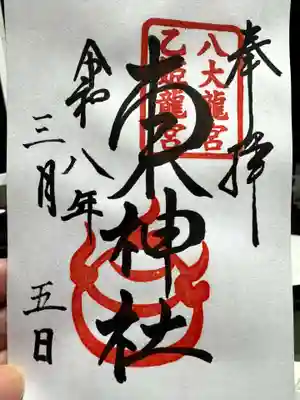 奉拝
八大龍宮
乙姫龍宮
神社
令和八年
三月五日